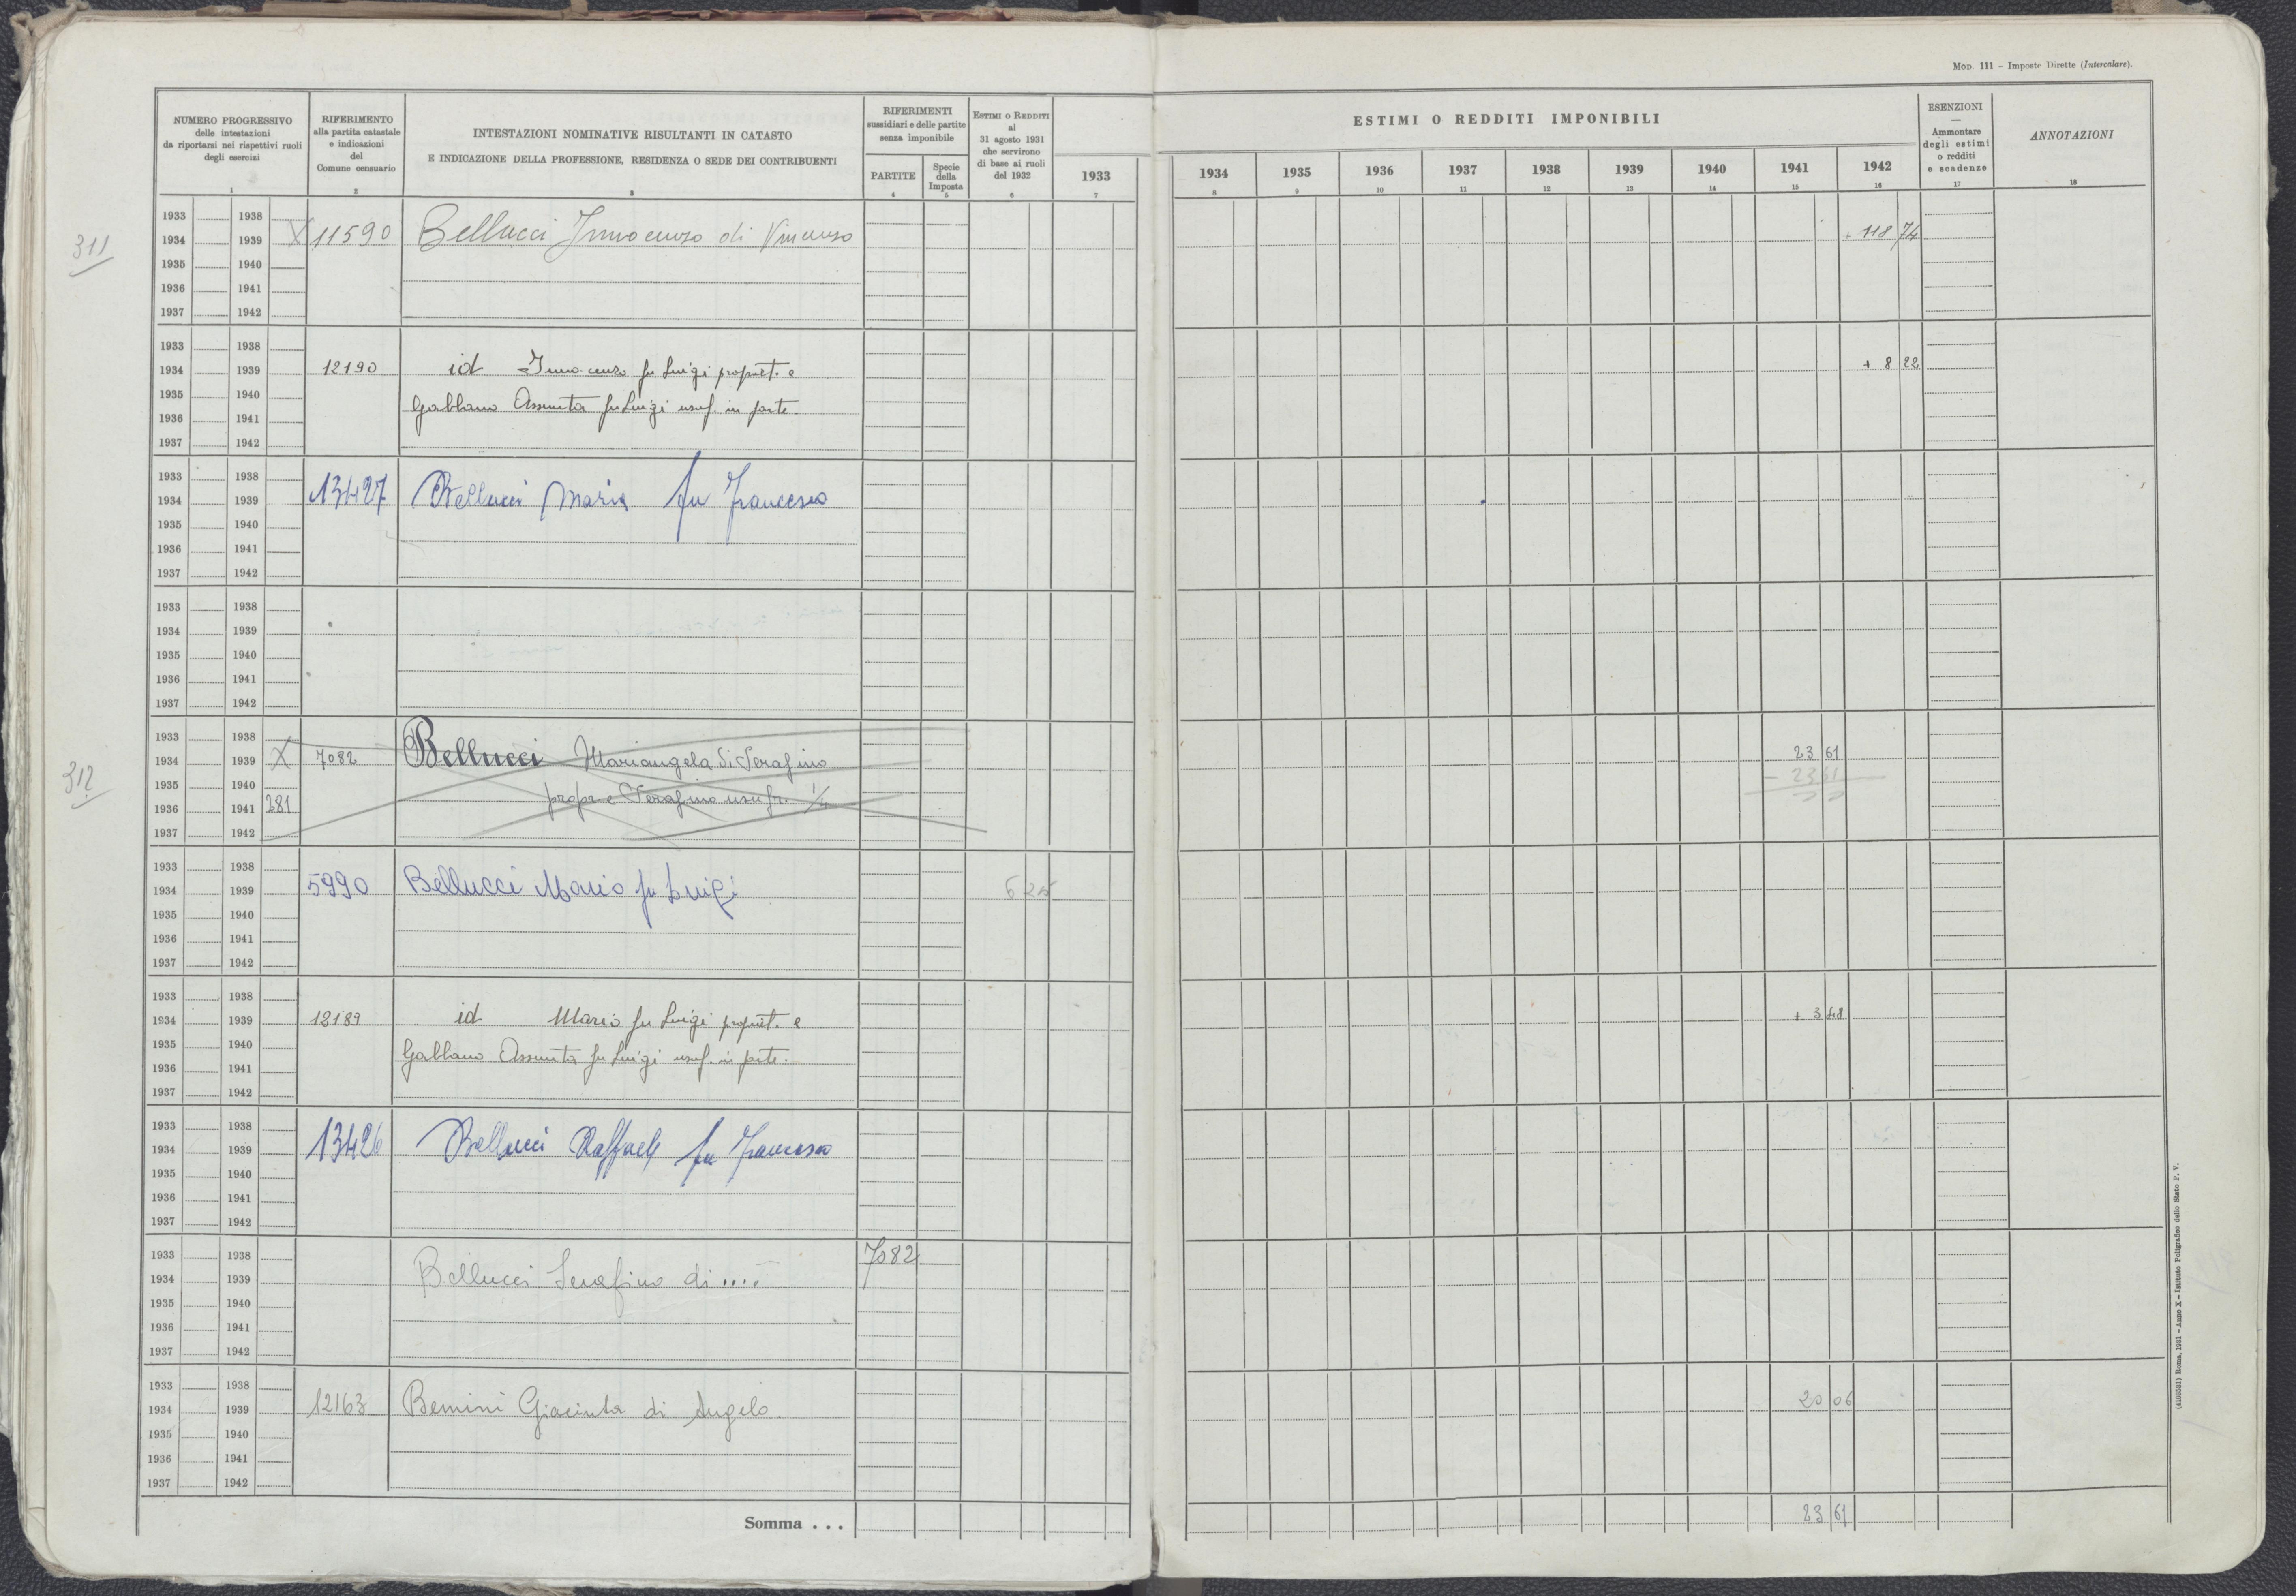 MOD. 111 – Imposte Dirette (Intercalare).
NUMERO PROGRESSIVO
delle intestazioni
da riportarsi nei rispettivi ruoli
degli esercizi
1
RIFERIMENTO
alla partita catastale
e indicazioni
del
Comune censuario
2
INTESTAZIONI NOMINATIVE RISULTANTI IN CATASTO
E INDICAZIONE DELLA PROFESSIONE, RESIDENZA O SEDE DEI CONTRIBUENTI
3
RIFERIMENTI
sussidiari e delle partite
senza imponibile
PARTITE
4
Specie
della
Imposta
5
ESTIMI O REDDITI
al
31 agosto 1931
che servirono
di base ai ruoli
del 1932
6
ESTIMI O REDDITI IMPONIBILI
1933 1934 1935 1936 1937 1938 1939 1940 1941 1942
7 8 9 10 11 12 13 14 15 16
ESENZIONI
—
Ammontare
degli estimi
o redditi
e scadenze
17
ANNOTAZIONI
18
1933 1938
311 1934 1939 X 11590 Bellucci Innocenzo di Vincenzo + 118 74
1935 1940
1936 1941
1937 1942
1933 1938
1934 1939 12190 id Innocenzo fu Luigi propriet. e + 8 22
1935 1940 Gabbano Assunta fu Luigi usuf. in parte.
1936 1941
1937 1942
1933 1938
1934 1939 13427 Bellucci Maria fu Francesco
1935 1940
1936 1941
1937 1942
1933 1938
1934 1939
1935 1940
1936 1941
1937 1942
1933 1938
312 1934 1939 X 7082 Bellucci Mariangela di Serafino 23 61
1935 1940 propr e Serafino usufr. 1/4 – 23 61
1936 1941 281
1937 1942
1933 1938
1934 1939 5990 Bellucci Mario fu Luigi 6 25
1935 1940
1936 1941
1937 1942
1933 1938
1934 1939 12189 id Mario fu Luigi propriet. e + 3 48
1935 1940 Gabbano Assunta fu Luigi usuf. in parte.
1936 1941
1937 1942
1933 1938
1934 1939 13426 Bellucci Raffaele fu Francesco
1935 1940
1936 1941
1937 1942
1933 1938 7082
1934 1939 Bellucci Serafino di ....
1935 1940
1936 1941
1937 1942
1933 1938
1934 1939 12163 Bemini Giacinta di Angelo 20 06
1935 1940
1936 1941
1937 1942
Somma . . . 23 61
Roma, 1931 – Anno X – Istituto Poligrafico dello Stato P. V.